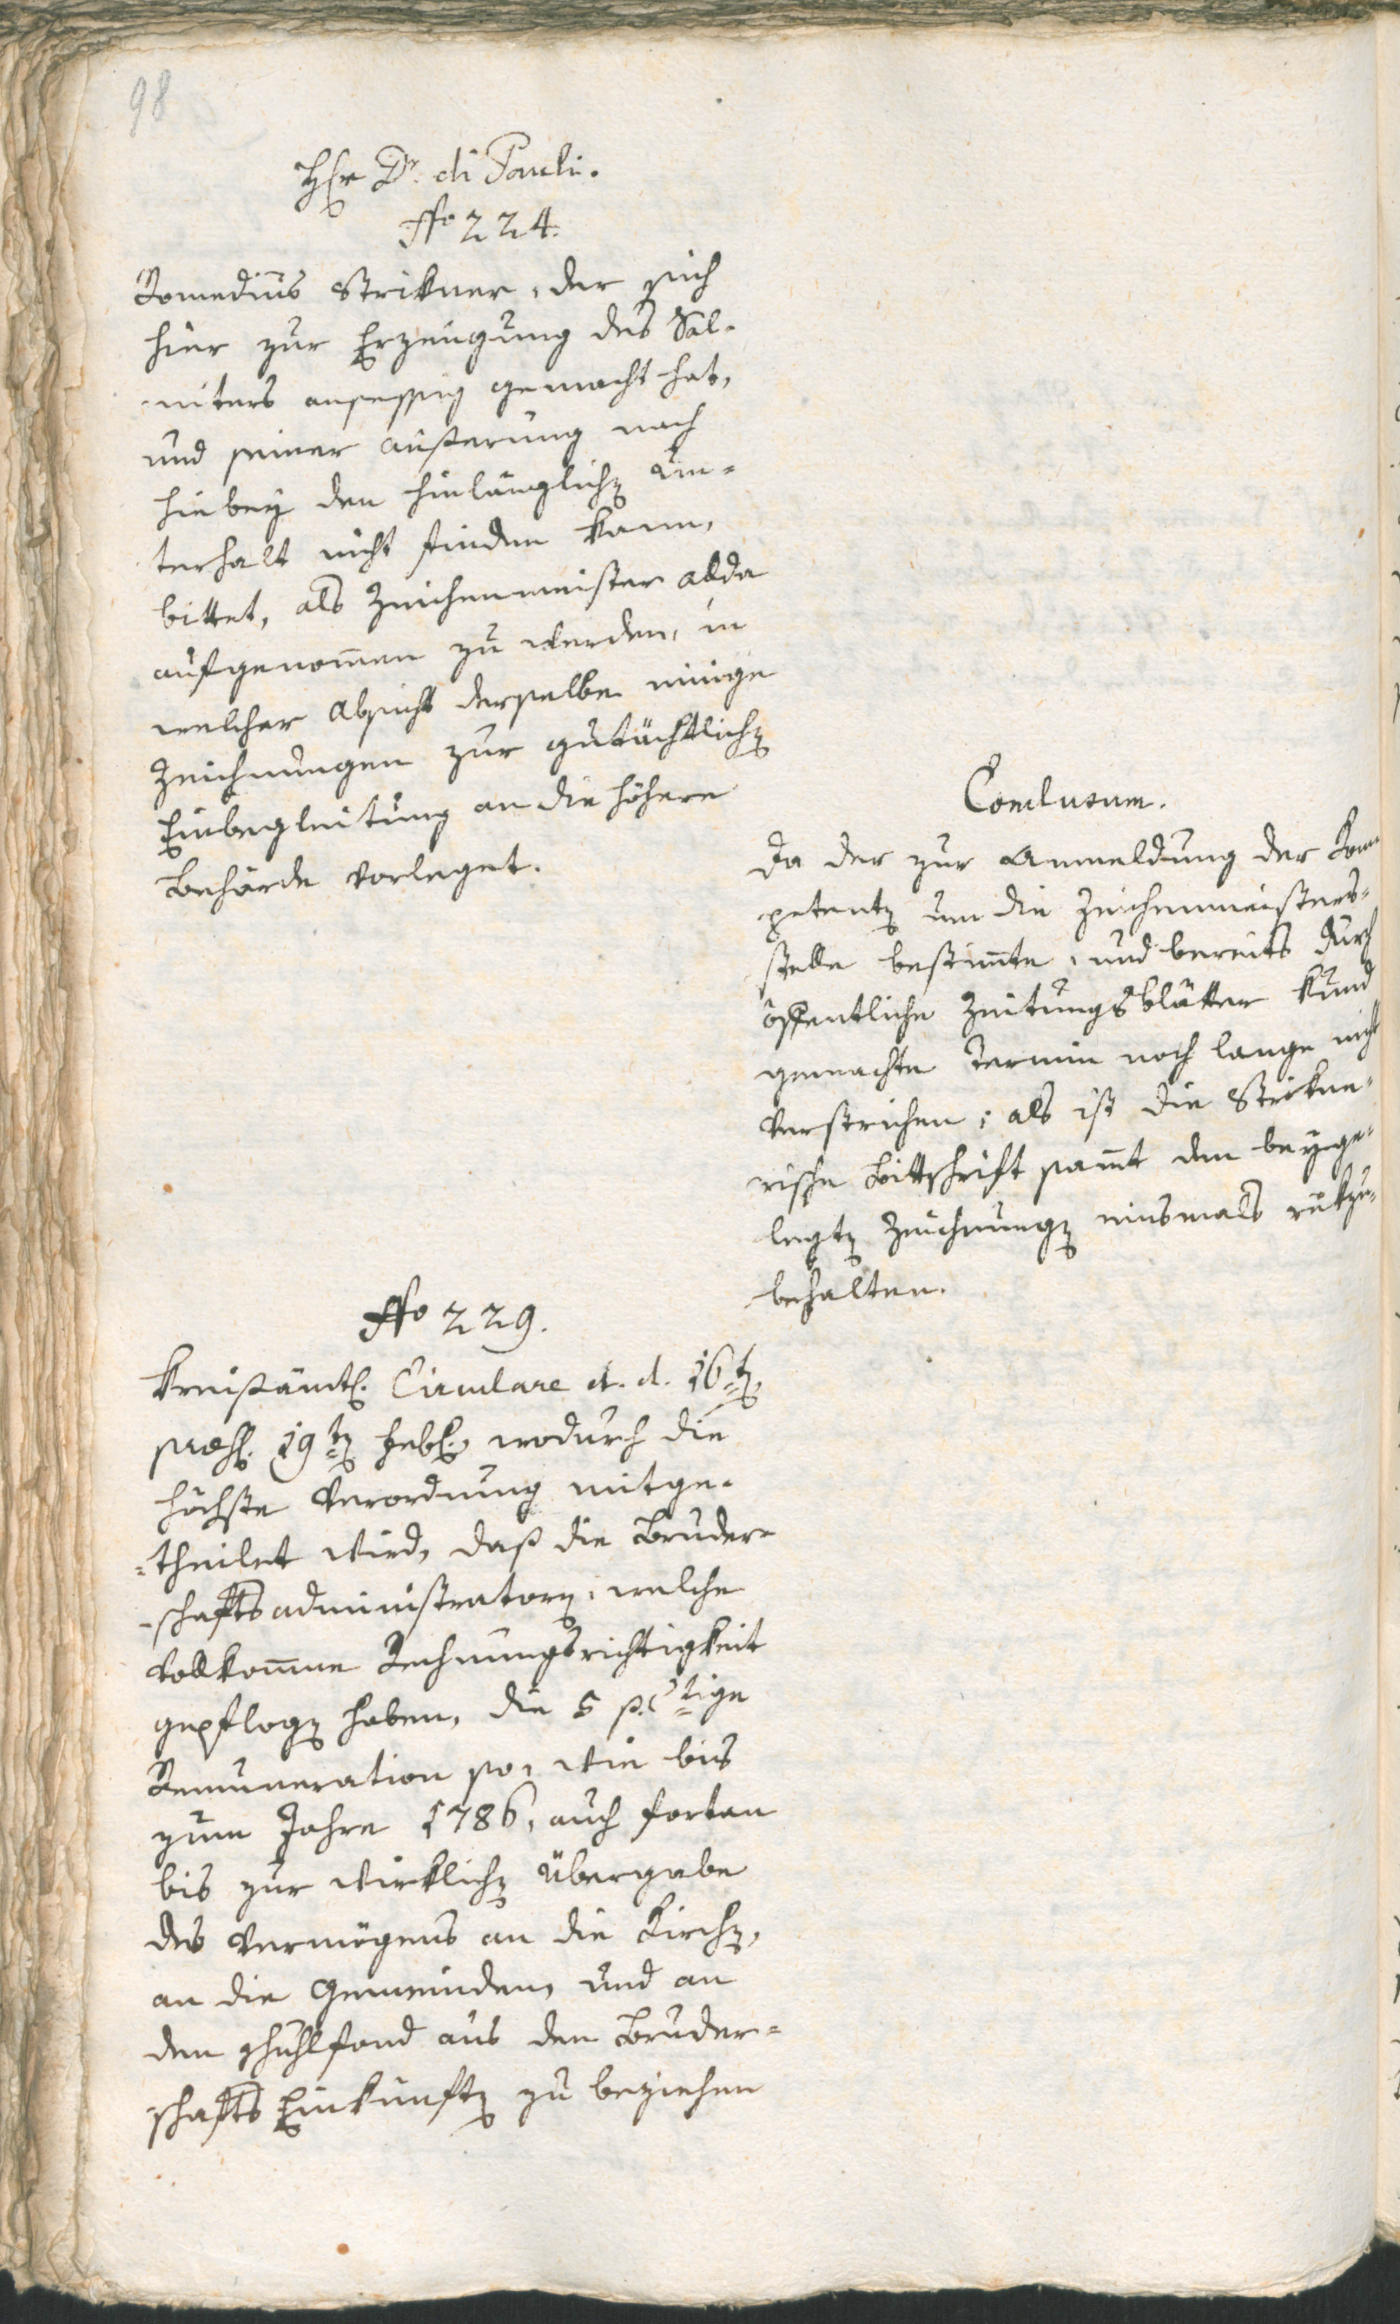 98
Hr Dr. di Pauli.
No 224.
Romedius Strikner, der sich
hier zur Erzeugung des Sal-
niters ansessig gemacht hat,
und seiner äusserung nach
hiebey den hinlänglichen Un-
terhalt nicht finden kann,
bittet, als Zeichenmeister allda
aufgenommen zu werden, in
welcher Absicht derselbe einige
Zeichnungen zur gutächtlichen
Einbegleitung an die höhere
Behörde vorleget.
Conclusum.
Da der zur Anmeldung der Kom
petenten um die Zeichenmeisters-
stelle bestimmte, und bereits durch
öffentliche Zeitungsblätter kund
gemachte Termin noch lange nicht
verstrichen; als ist die Strikne-
rische Bittschrift sammt den beyge-
legten Zeichnungen einsmals rükzu-
behalten.
No 229.
Kreisämtl. Circulare d. d. 16ten
praes. 19ten Feb., wodurch die
höchste Verordnung mitge-
=theilet wird, daß die Bruder-
-schaftsadministratoren, welche
vollkommene Rechnungsrichtigkeit
gepflogen haben, die 5 pctige
Remuneration so, wie bis
zum Jahre 1786, auch fortan
bis zur wirklichen Übergabe
des Vermögens an die Kirchen,
an die Gemeinden, und an
den Schuhlfond aus den Bruder-
schafts Einkünften zu beziehen